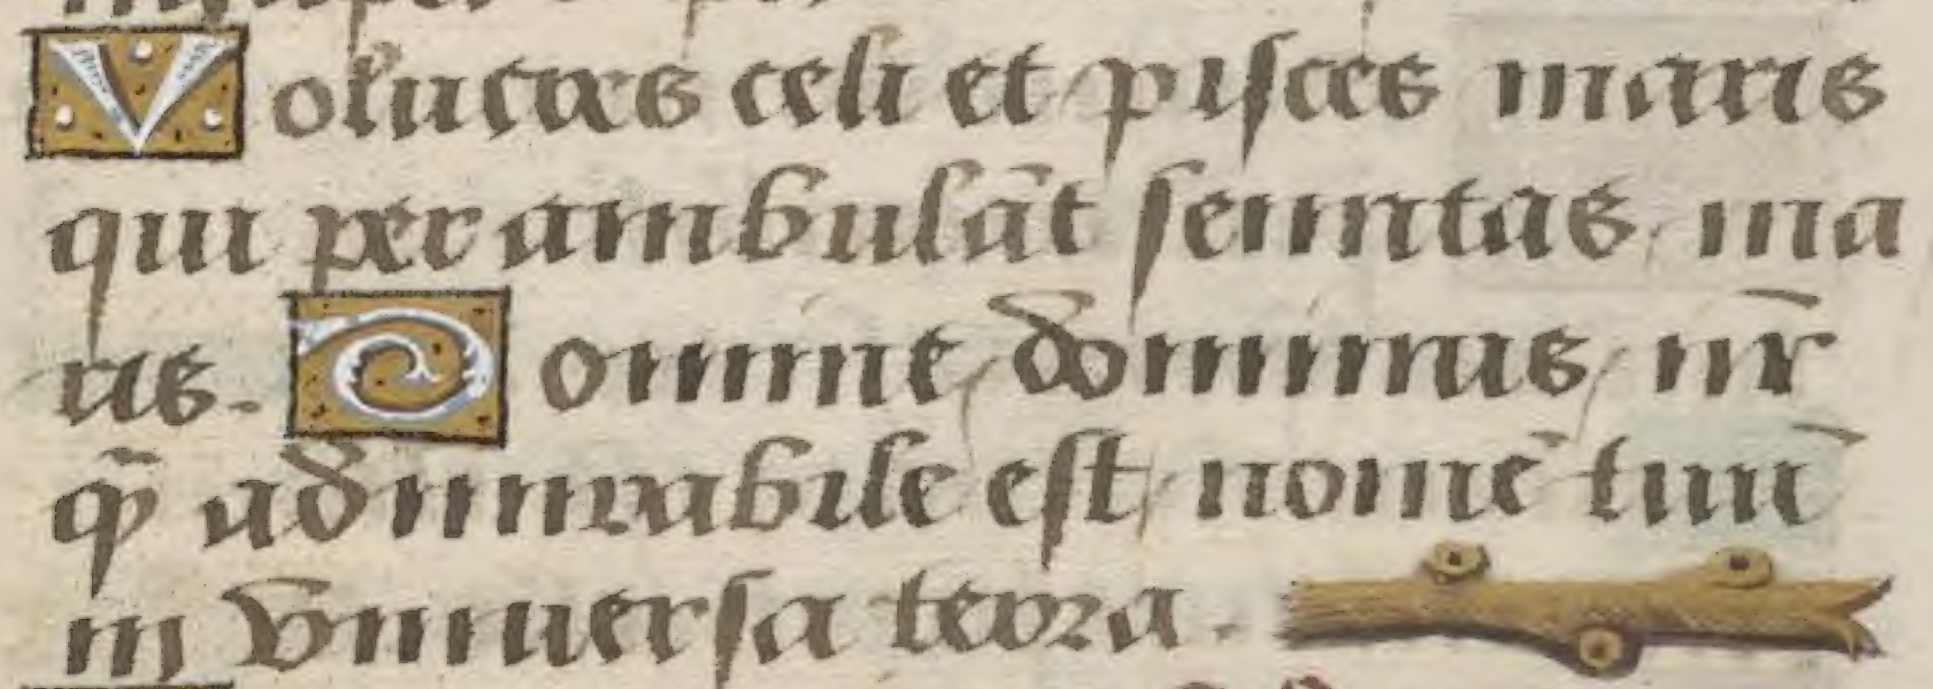 Volucres celi et pisces maris
qui perambulãt semitas ma
ris. Domine dominus nr̃
q̃ admirabile est nomẽ tuũ
in vniuersa terra.